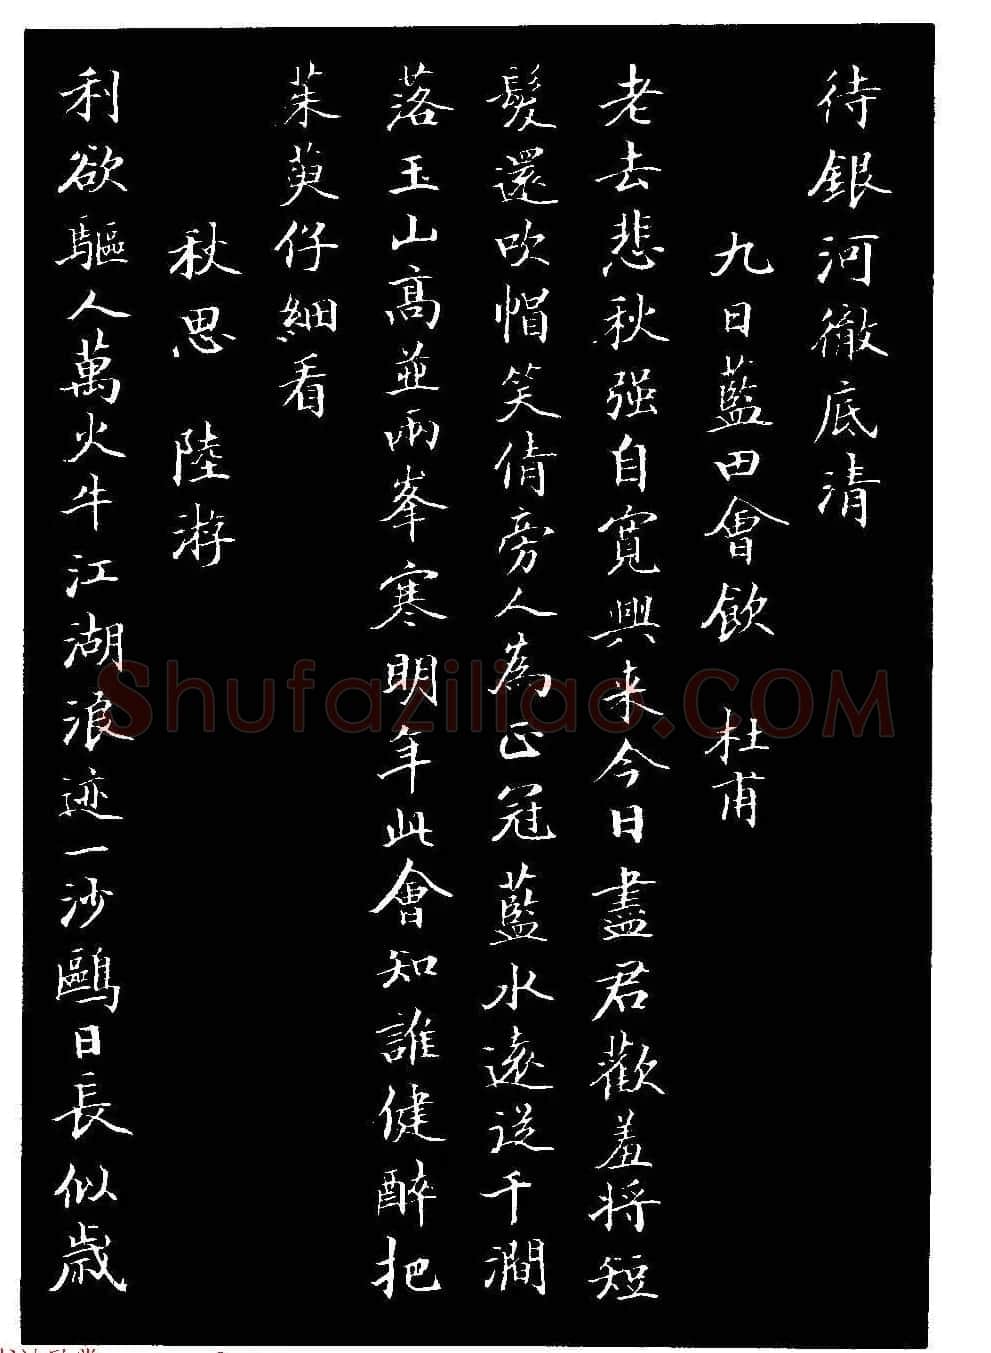 待銀河徹底清
九日藍田會飲 杜甫
老去悲秋强自寬興来今日盡君歡羞將短
髮還吹帽笑倩旁人為正冠藍水遠送千澗
落玉山高並兩峯寒明年此會知誰健醉把
茱萸仔細看
秋思 陸游
利欲驅人萬火牛江湖浪迹一沙鷗日長似歲
Shufaziliao.COM